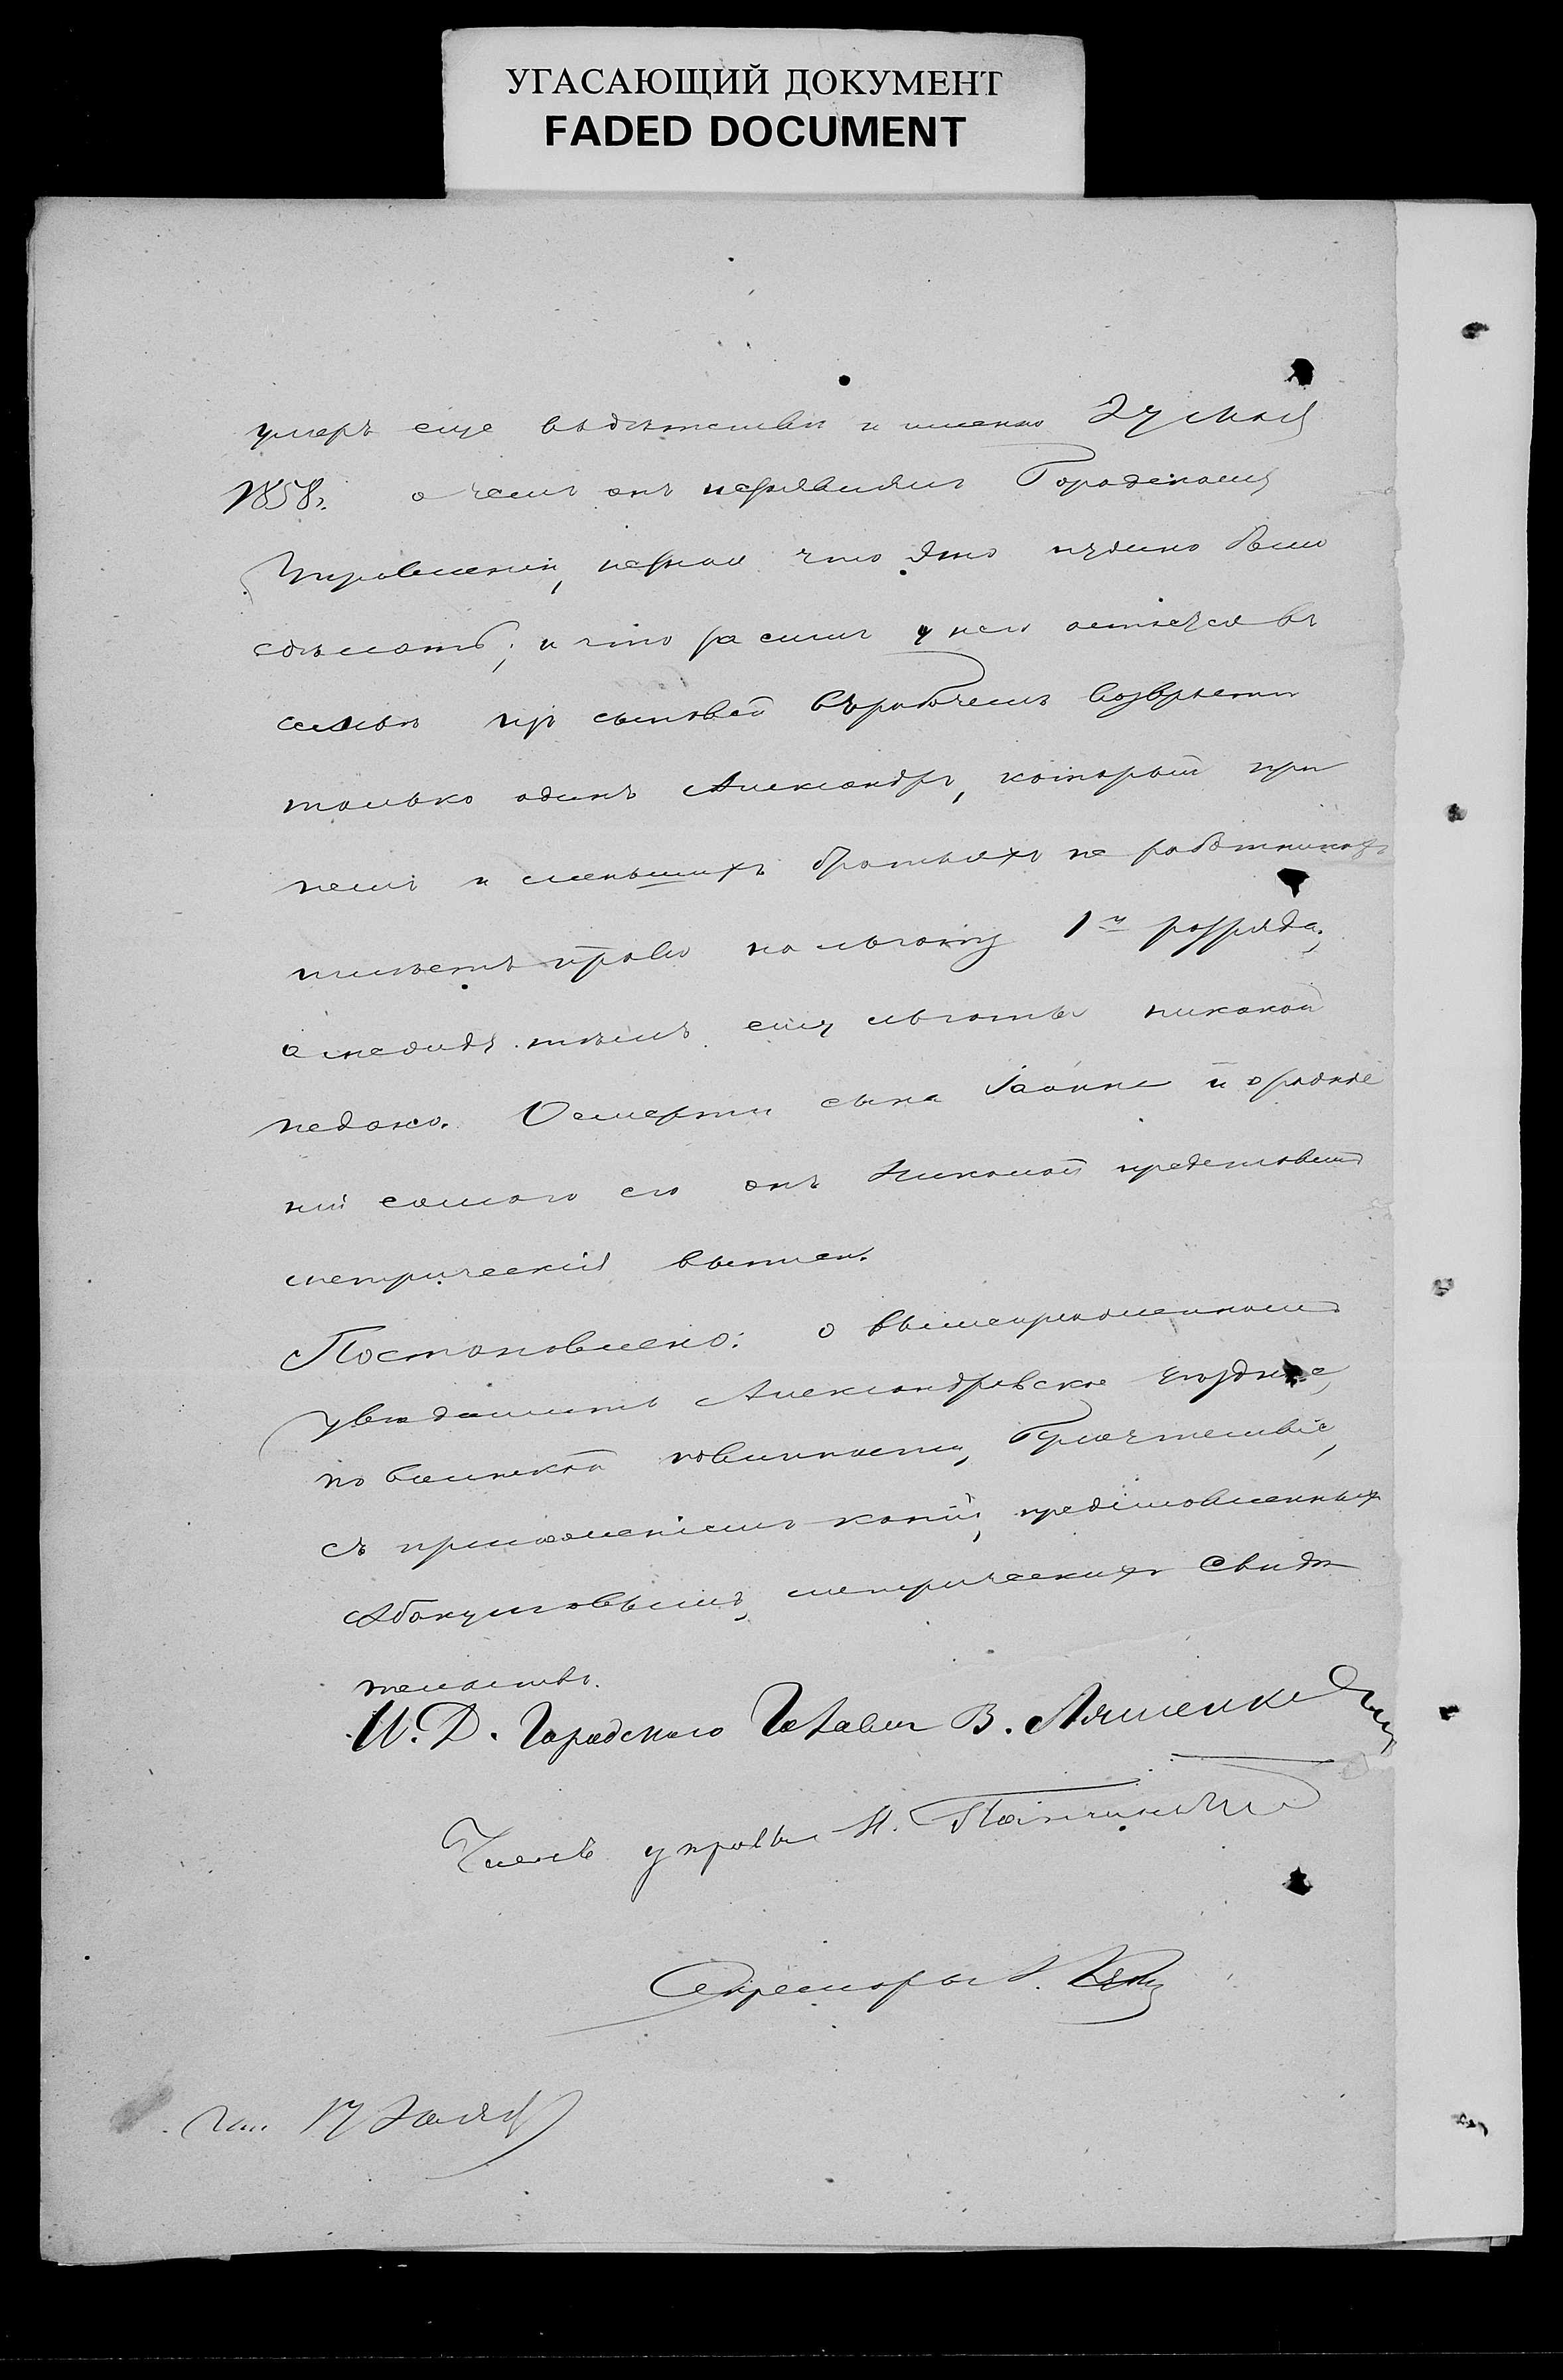 УГАСАЮЩИЙ ДОКУМЕНТ
FADED DOCUMENT
умеръ еще въ дѣтствѣ и именно 27 Мая
1858 г. о чемъ онъ незаявлялъ Городскому
Управленію, незная что это нужно было
сдѣлать; и что за симъ у него остается въ
семьѣ изъ сыновей въ рабочемъ возврастѣ
только одинъ Александръ, который при
немъ и меньшихъ братьяхъ не работникахъ
имѣетъ право на льготу 1го разряда,
а между тѣмъ ему льготы никакой
недано. О смерти сына Іоанна и о рожде
ніи самого его онъ Николай представилъ
метрическія выписи.
Постановлено: о вышеизложенномъ
увѣдомить Александровское уѣздное,
по воинской повинности, Присутствіе,
съ приложеніемъ копій, представленныхъ
Абакумовымъ, метрическихъ свидѣ
тельствъ.
И. Д. Городского Головы В. Ляшенко
Членъ управы Н.
Секретарь
17